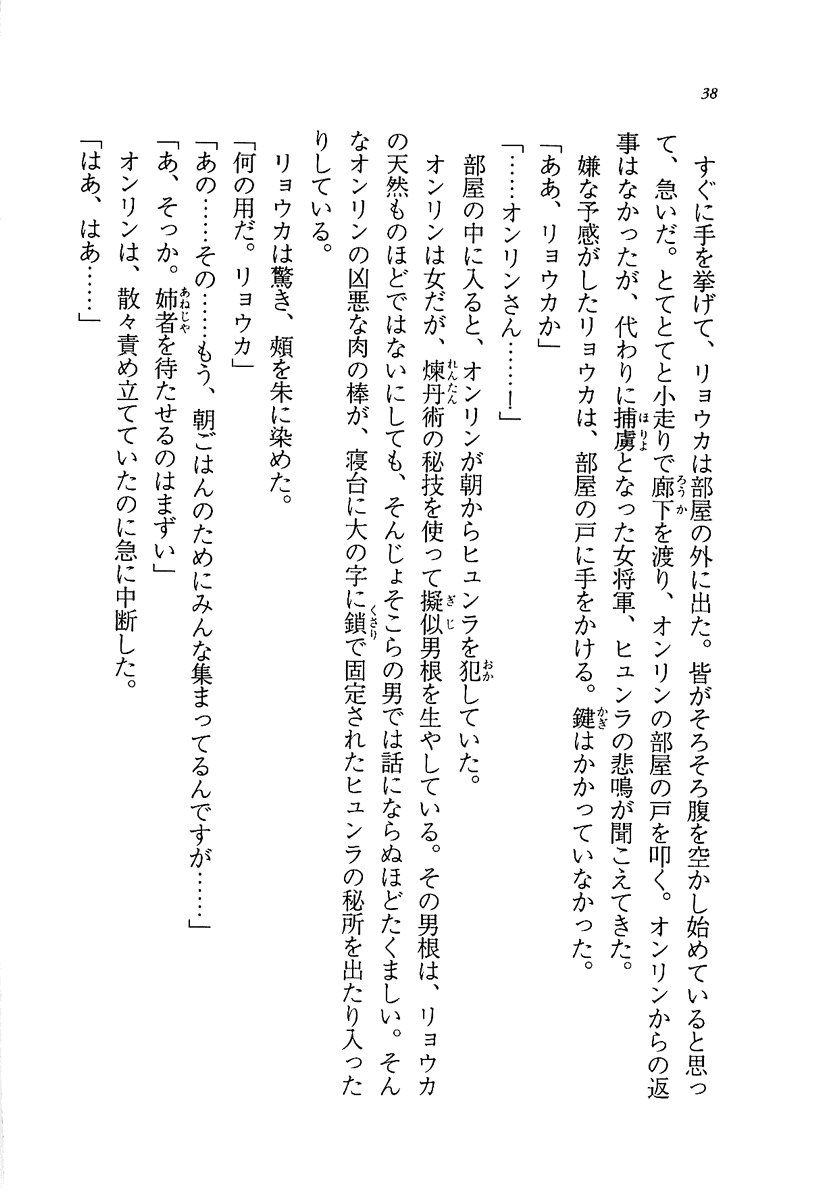 38
すぐに手を挙げて、リョウカは部屋の外に出た。皆がそろそろ腹を空かし始めていると思っ
て、急いだ。とてとてと小走りで廊下を渡り、オンリンの部屋の戸を叩く。オンリンからの返
事はなかったが、代わりに捕虜となった女将軍、ヒュンラの悲鳴が聞こえてきた。
嫌な予感がしたリョウカは、部屋の戸に手をかける。鍵はかかっていなかった。
「ああ、リョウカか」
「……オンリンさん……！」
部屋の中に入ると、オンリンが朝からヒュンラを犯していた。
オンリンは女だが、煉丹術の秘技を使って擬似男根を生やしている。その男根は、リョウカ
の天然ものほどではないにしても、そんじょそこらの男では話にならぬほどたくましい。そん
なオンリンの凶悪な肉の棒が、寝台に大の字に鎖で固定されたヒュンラの秘所を出たり入った
りしている。
リョウカは驚き、頰を朱に染めた。
「何の用だ。リョウカ」
「あの……その……もう、朝ごはんのためにみんな集まってるんですが……」
「あ、そっか。姉者を待たせるのはまずい」
オンリンは、散々責め立てていたのに急に中断した。
「はあ、はあ……」